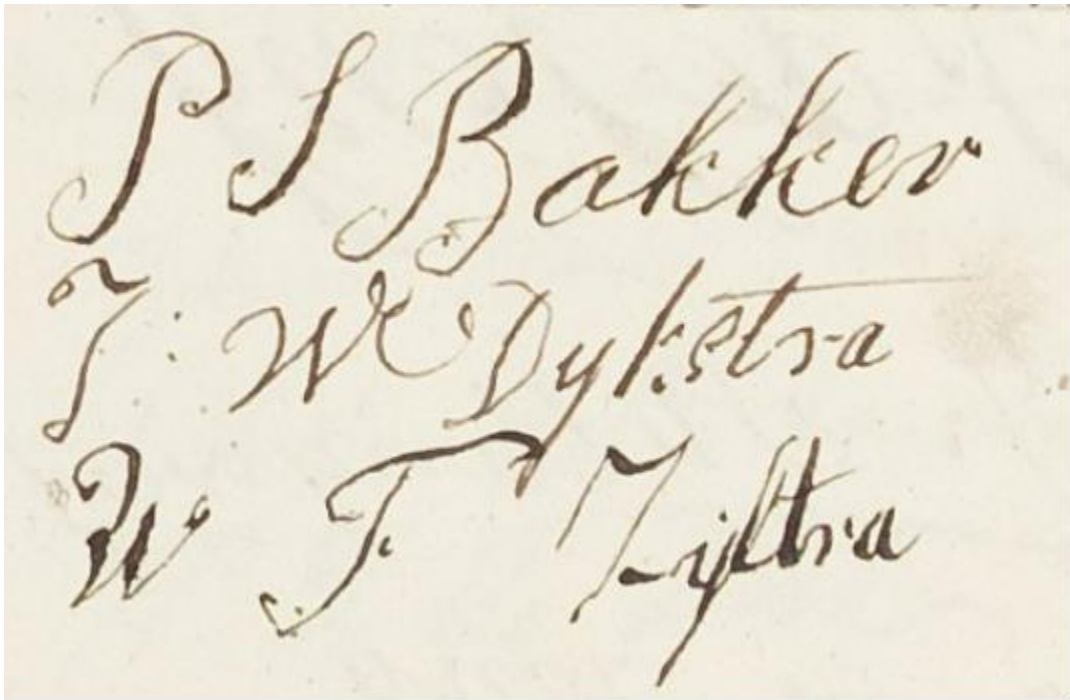 P S Bakker
T: W Dykstra
W F Zijlstra